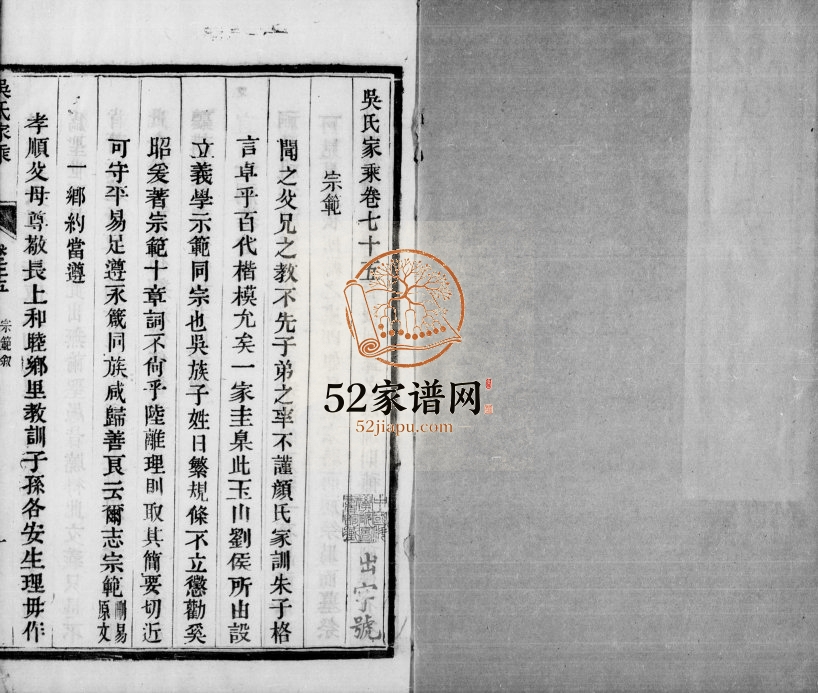 吳氏家乘卷七十五
出字號
宗範
聞之父兄之教不先子弟之率不謹顏氏家訓朱子格
言卓乎百代楷模允矣一家圭臬此玉山劉侯所由設
立義學示範同宗也吳族子姓日繁規條不立懲勸奚
昭爰著宗範十章詞不尚乎陸離理則取其簡要切近
可守平易足遵永箴同族咸歸善良云爾志宗範刪易原文
一鄉約當遵
孝順父母尊敬長上和睦鄉里教訓子孫各安生理毋作
吳氏家乘
宗範敘
52家谱网
52jiapu.com